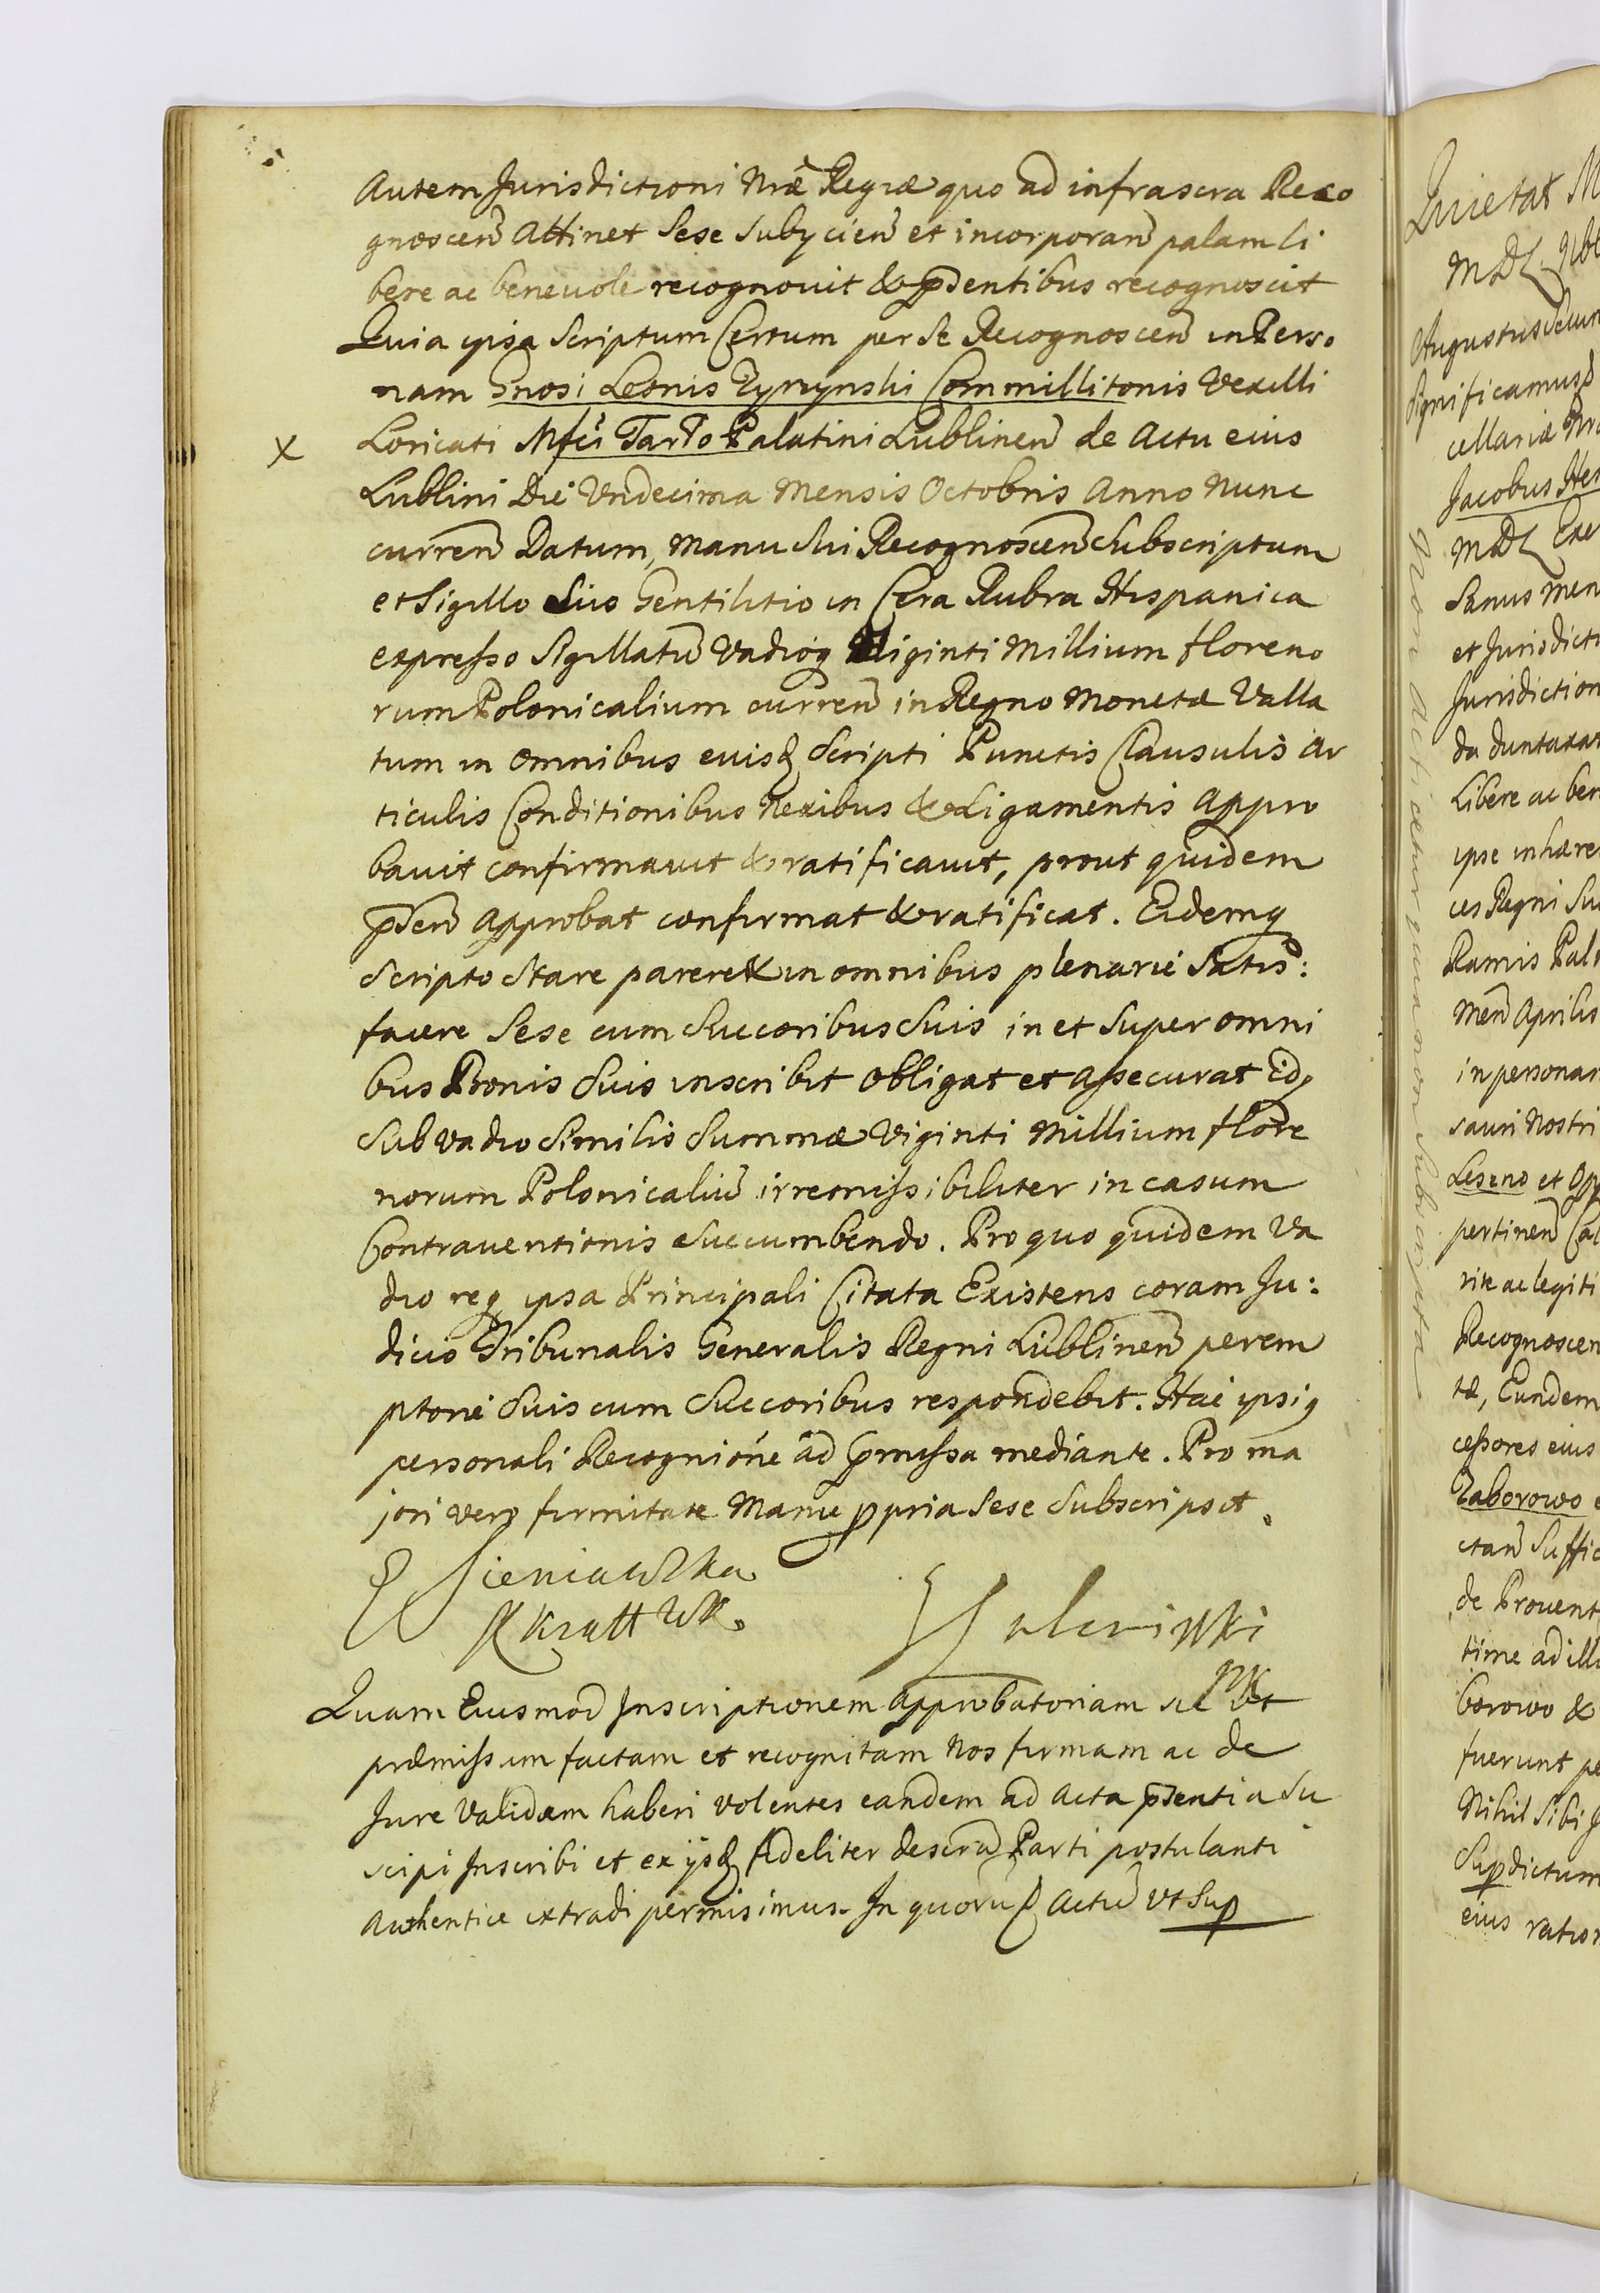 Autem Jurisdictioni Nrae Regiae quo ad infrascra Reco
gnoscen Attinet Sese Subycien et incorporan palam li
bere ac beneuole recognouit & pntibus recognoscit
Quia ipsa Scriptum Certum per Se Recognoscen in Perso
nam Gnosi Leonis Zyrzynski Commillitonis Vexilli
X Loricati Mfci Tarło Palatini Lublinen de Actu eius
Lublini Die Vndecima Mensis Octobris Anno Nunc
curren Datum, manu sui Recognoscen Subscriptum
et Sigillo Suo Gentilitio in Cera Rubra Hispanica
expresso Sigillatu Vadioq Viginti Millium floreno
rum Polonicalium curren in Regno Monetae Valla
tum in Omnibus euisd Scripti Punctis Clausulis Ar
ticulis Conditionibus Nexibus & Ligamentis Appro
bauit confirmauit & ratificauit, prout quidem
pnsen Approbat confirmat & ratificat. Eidemq
Scripto Stare parere & in omnibus plenarie Satis:
facere Sese cum Succoribus Suis in et Super omni
bus Bonis Suis inscribit Obligat et Assecurat Idq
Sub vadio Similis Summae Viginti Millium flore
norum Polonicaliu irremissibiliter in casum
Contrauentionis Succumbendo. Pro quo quidem Va
dio req ipsa Principali Citata Existens coram Ju:
dicio Tribunalis Generalis Regni Lublinen perem
ptorie Suis cum Succoribus respondebit. Hac ipsiq
personali Recognione ad pmissa mediante. Pro ma
jori vero firmitate Manu ppria Sese Subscripsit.
E Sieniawska
Quam Eiusmod Inscriptionem Approbatoriam
praemissum factam et recognitam Nos firmam ac de
Jure Validam haberi volentes eandem ad Acta pntia Su
scipi Inscribi et ex ijsd fideliter descra Parti postulanti
Authentice extradi permisimus. In quoru f Actu Vt Sup
Quietat
MDL
Augustus Secun
Significamus
cellariae Nra
Jacobus Hen
MDL
Sanus men
et Jurisdicti
Jurisdiction
da duntaxat
Libere ac ben
ipse inhaere
ces Regni Su
Ramis Pal
Men Aprilis
in personam
sauri Nostri
Leseno et Op
pertinen Ca
rite ac legiti
Recognoscen
tae, Eundem
cessores eius
Zaborowo
ctan Suffic
de Prouent
time ad ill
borowo &
fuerunt pe
Nihil Sibi J
Supdictum
eius ration
Non Acticetur quia non Subscripta